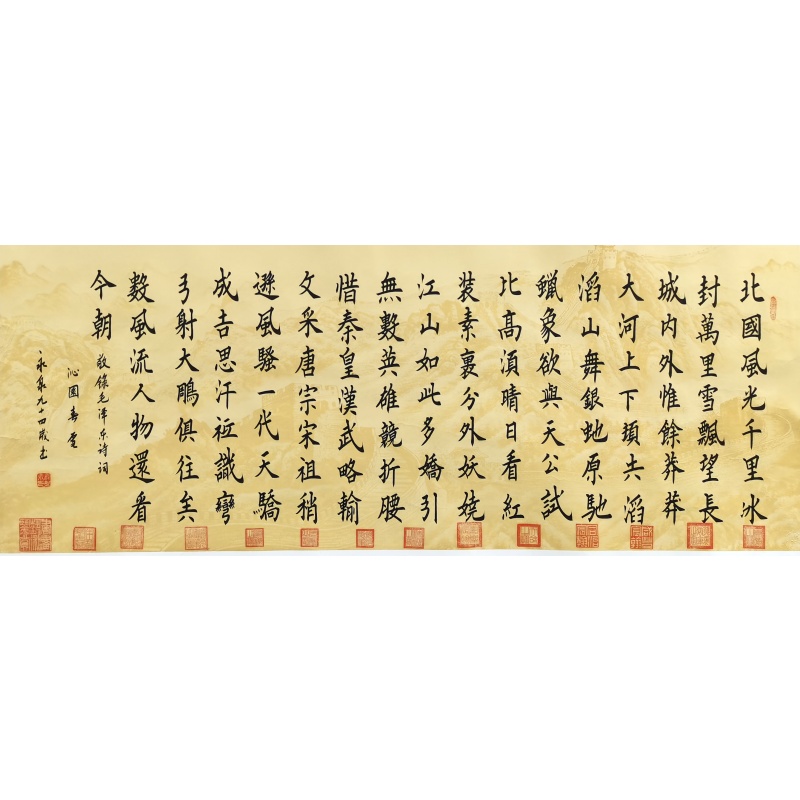 北國風光千里冰
封萬里雪飄望長
城内外惟餘莽莽
大河上下頓失滔
滔山舞銀虵原馳
蠟象欲與天公試
比高須晴日看紅
装素裹分外妖嬈
江山如此多嬌引
無數英雄競折腰
惜秦皇漢武略輸
文采唐宗宋祖稍
遜風騷一代天驕
成吉思汗祗識彎
弓射大鵰俱往矣
數風流人物還看
今朝
敬錄毛澤东诗词
沁園春雪
永泉九十四歲书